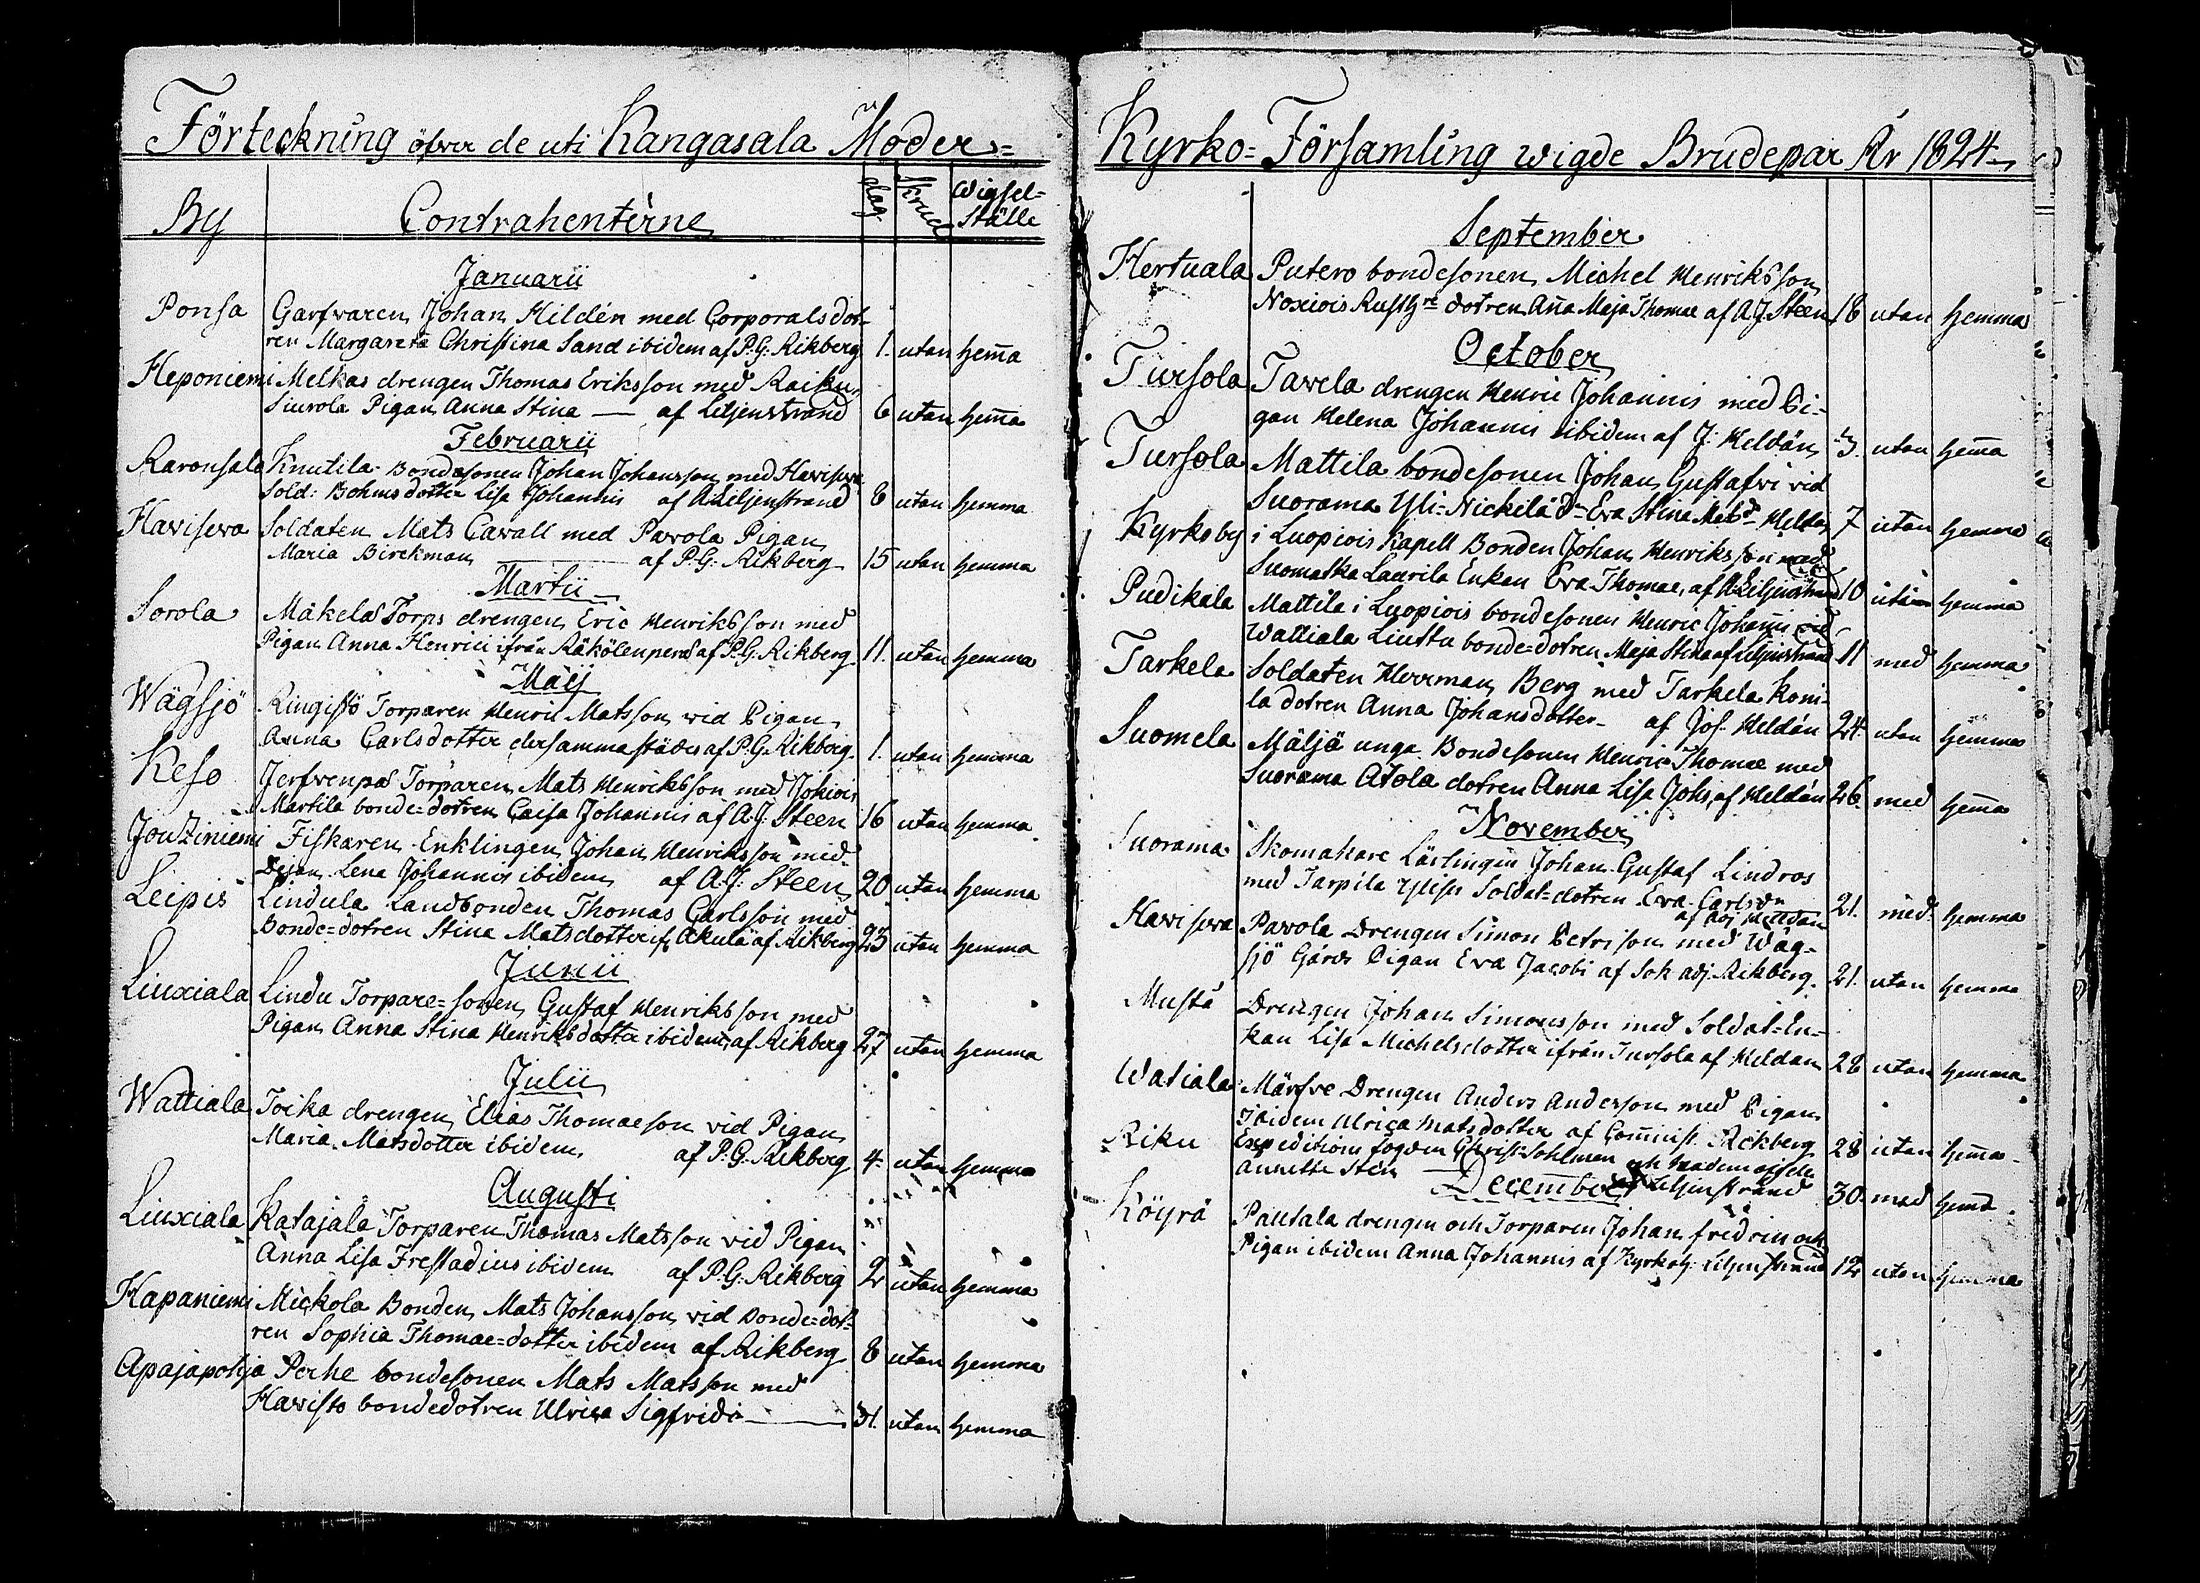 Förteckning öfver de uti Kangasala Moder=
By Contrahenterne dag Skrud Wigsel=
Ställe
Januarii
Ponsa Garfvaren Johan Hildén med Corporals dot-
ren Margareta Christina Sand ibidem af P.G. Rikberg 1. utan hem̄a
Heponiemi Melkas drengen Thomas Eriksson med Raiku
Siurola Pigan Anna Stina — af Liljenstrand 6 utan hem̄a
Februarii
Raronsalo Knutila Bondesonen Johan Johansson med Haviseva
Sold: Bohms dotter Lisa Johannis af Liljenstrand 8 utan hemma
Haviseva Soldaten Mats Cavall med Pavola Pigan
Maria Birckman — af P.G. Rikberg 15 utan hemma
Martii
Sorola Mäkelä Torps drengen Eric Henriksson med
Pigan Anna Henrici ifrån Räkölenperä af P.G. Rikberg 11. utan hemma
Maij
Wägsjö Ringistö Torparen Henric Matsson vid Pigan
Anna Carlsdotter dersammastädes af P.G. Rikberg. 1. utan hemma
Keso Jerfvenpä Torparen Mats Henriksson med Johiois
Martila bonde=dotren Caisa Johannis af A.J. Steen 16 utan hemma
Jouziniemi Fiskaren Enklingen Johan Henriksson med
Pigan Lena Johannis ibidem af A.J. Steen 20 utan hemma
Leipis Lindula Landbonden Thomas Carlsson med
Bonde=dotren Stina Matsdotter if. Akula af Rikberg 23 utan hemma
Junii
Liuxiala Lindu Torpare=sonen Gustaf Henriksson med
Pigan Anna Stina Henriksdotter ibidem af Rikberg 27 utan hemma
Julii
Wattiala Toika drengen Elias Thomaeson vid Pigan
Maria Matsdotter ibidem af P.G. Rikberg 4. utan hemma
Augusti
Liuxiala Katajala Torparen Thomas Matsson vid Pigan
Anna Lisa Frestadius ibidem af P.G. Rikberg 2 utan hemma
Hapaniemi Mickola Bonden Mats Johansson vid Bonde=dot-
ren Sophia Thomae=dotter ibidem af Rikberg 8 utan hemma
Apajapohja Perhe bondesonen Mats Matsson med
Havisto bondedotren Ulrica Sigfridi — 31. utan hemma
Kyrko=Församling wigde Brudepar År 1824
September
Hertuala Putero bondesonen Michel Henriksson
Rusth dotren Anna Maja Thomae af A.J. Steen 18 utan hemma
October
Tursola Tavela drengen Henric Johannis med Pi-
gan Helena Johannis ibidem af J. Heldán 3. utan hem̄a
Tursola Mattila bondesonen Johan Gustafvi vid
Suorama Yli=Nickilä d. Eva Stina Heldán 7 utan hemma
Kyrkoby i Luopiois Kapell Bonden Johan Henriksson med
Suomatka Laurila Enkan Eva Thomae, af Liljenstrand 10 utan hemma
Pudikala Mattila i Luopiois bondesonen Henric Johannis vid
Wattiala Liuttu bonde=dotren Maja Stina af Liljenstrand 11 med hemma
Tarkela Soldaten Herrman Berg med Tarkela Koni-
la dotren Anna Johansdotter af Jos. Heldán 24. utan hemma
Suomela Mäljä unga Bondesonen Henric Thomae med
Suorama Atola dotren Anna Lisa Johs. af Heldán 26. med hem̄a
November
Suorama Skomakare Lärlingen Johan Gustaf Lindros
med Tarpila Soldat=dotren Eva Carlsdr
af adj. Heldán 21. med hemma
Havisera Pavola Drengen Simon Petrisson med Wäg-
sjö Gårds Pigan Eva Jacobi af Sok. adj. Rikberg. 21. utan hemma
Musta Drengen Johan Simonsson med Soldat=En-
kan Lisa Michelsdotter ifrån Tursola af Heldan 28 utan hemma
Watiala Märfve Drengen Anders Anderson med Pigan
Ibidem Ulrica Matsdotter af Com̄inist. Rikberg 28 utan hem̄a
Riku Expeditions fogden Christ. Sohlman och Mademoiselle
Annette Sten Liljenstrand 30. med hemma
December
Köyrä Pautala drengen och Torparen Johan fredrin och
Pigan ibidem Anna Johannis af Kyrkoh. Liljenstrand 12 utan hemma